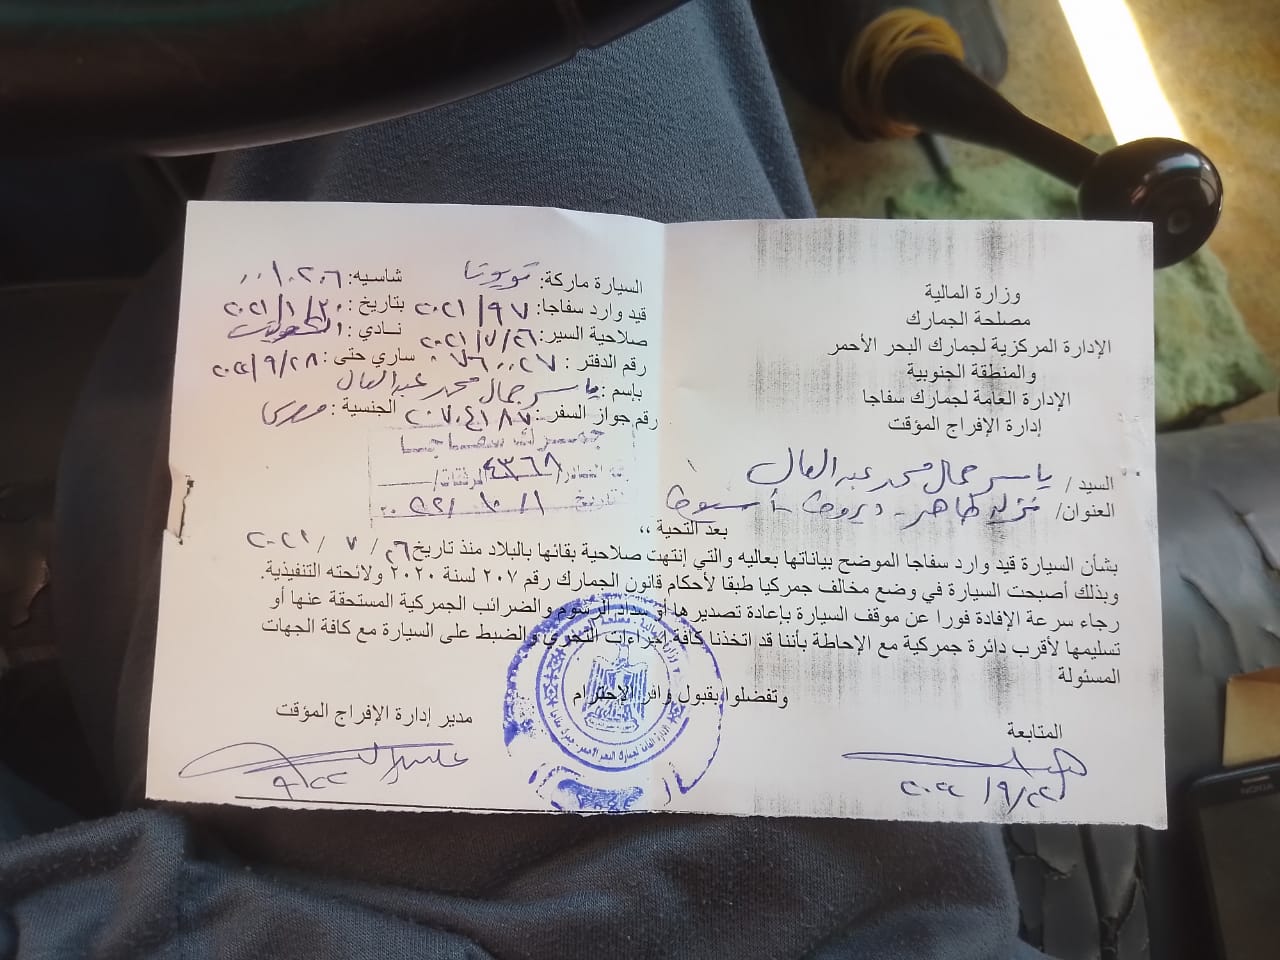 وزارة المالية
مصلحة الجمارك
الإدارة المركزية لجمارك البحر الأحمر
والمنطقة الجنوبية
الإدارة العامة لجمارك سفاجا
إدارة الإفراج المؤقت
السيارة ماركة: تويوتا شاسيه: ٠٠١٠٢٠٦
قيد وارد سفاجا: ٩٧ / ٢٠٢١ بتاريخ: ٢٠٢١/١/٢٠
صلاحية السير: ٢٠٢١/٧/٢٦ نادي: الكويت
رقم الدفتر: ٠٧٦٠٠٢٧ ساري حتى: ٩/٢٨/
بإسم: ياسر جمال محمد عبدالعال
رقم جواز السفر: ٢٠٧٠٤١٨٧ الجنسية: مصرى
جمرك سفاجا
الصادر/ ٤٣٦٨ المرفقات/
التاريخ ١ / ١٠ /
السيد / ياسر جمال محمد عبد العال
العنوان/ نزلة ظاهر - ديروط - أسيوط
بعد التحية ،،
بشأن السيارة قيد وارد سفاجا الموضح بياناتها بعاليه والتي إنتهت صلاحية بقائها بالبلاد منذ تاريخ ٢٦ / ٧ / ٢٠٢١
وبذلك أصبحت السيارة في وضع مخالف جمركيا طبقا لأحكام قانون الجمارك رقم ٢٠٧ لسنة ٢٠٢٠ ولائحته التنفيذية.
رجاء سرعة الإفادة فورا عن موقف السيارة بإعادة تصديرها أو سداد الرسوم والضرائب الجمركية المستحقة عنها أو
تسليمها لأقرب دائرة جمركية مع الإحاطة بأننا قد اتخذنا كافة إجراءات التحري والضبط على السيارة مع كافة الجهات
المسئولة
وتفضلوا بقبول وافر الإحترام
المتابعة
مدير إدارة الإفراج المؤقت
٩/٢٢
٢٠٢٢ /٩/٢٢